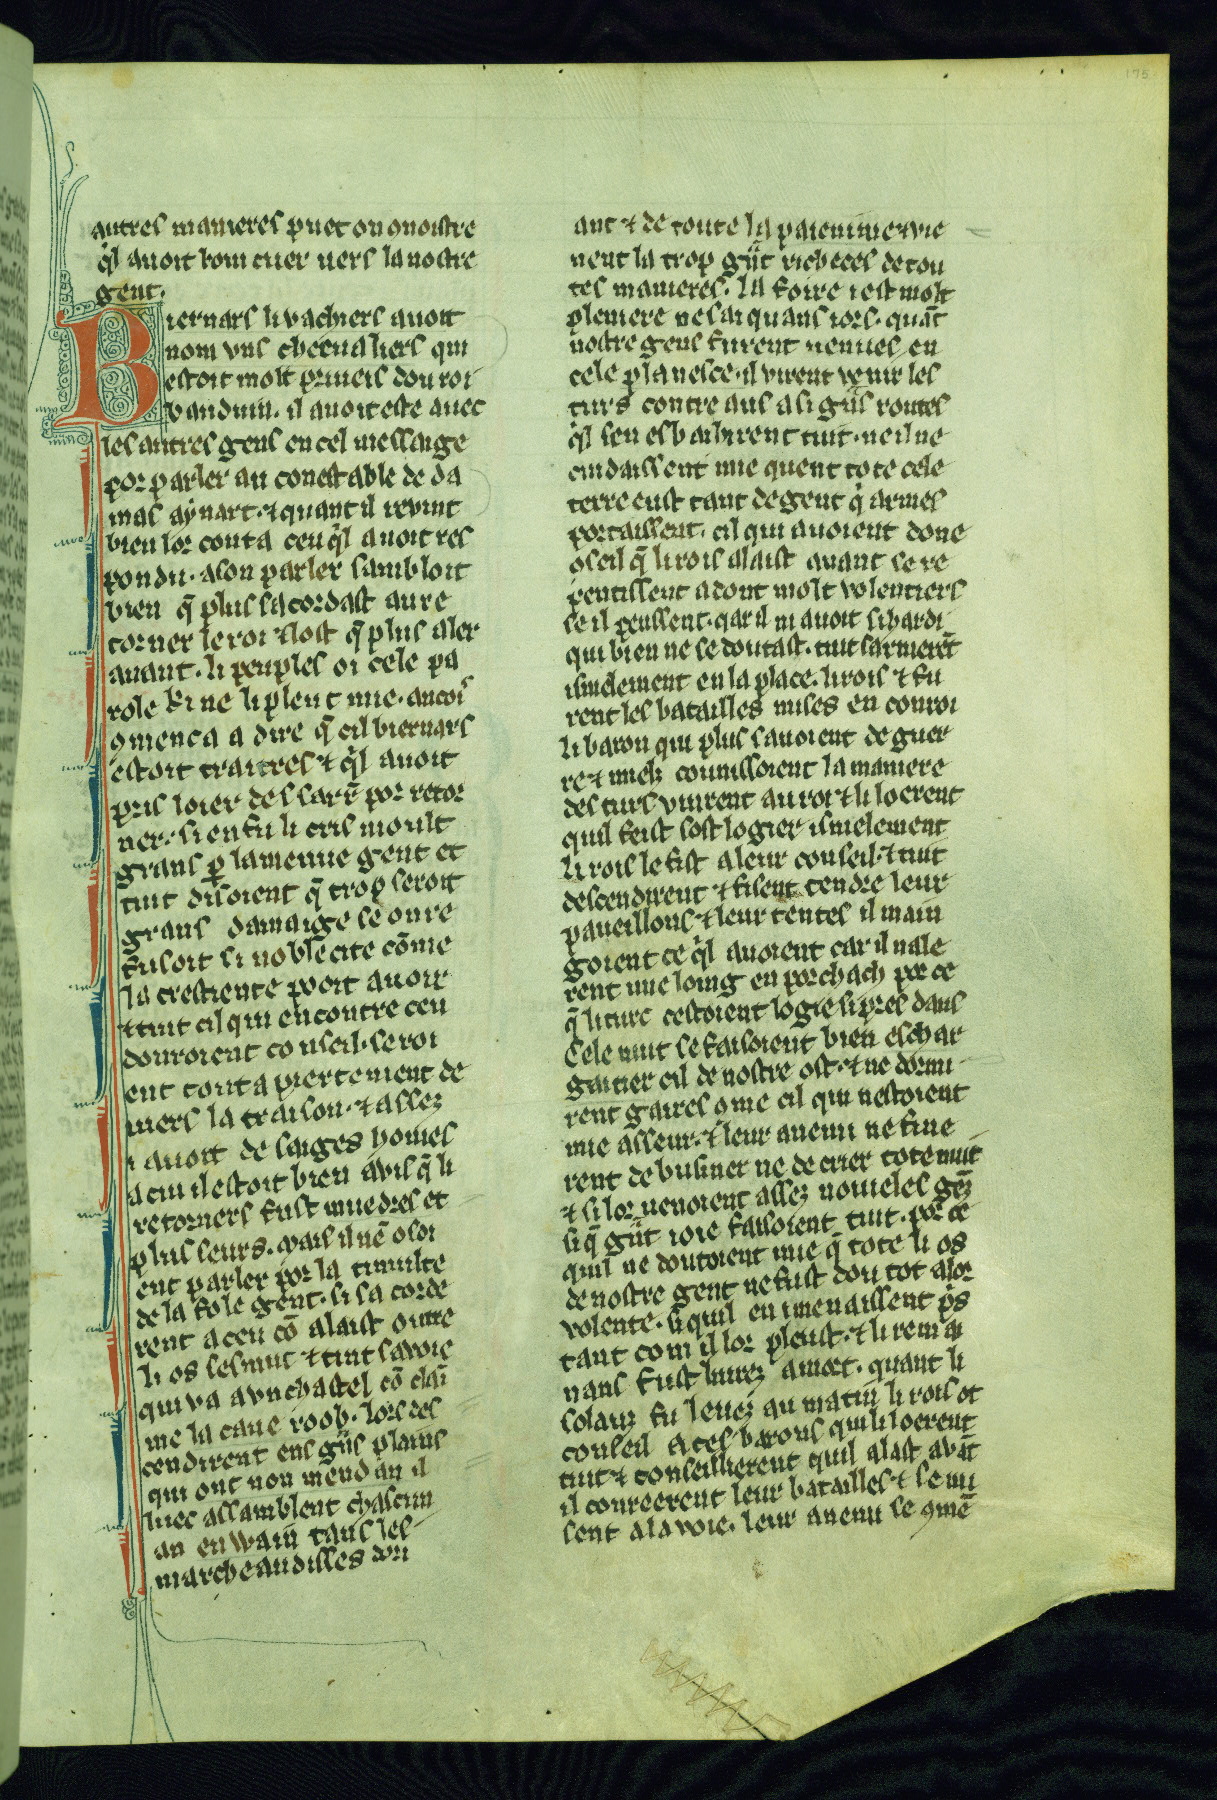 175
autres manieres puet on ꝯnoistre
q̓l auoit bom cuer uers la nostre
gent.
Biernars li vachiers auoit
nom vns cheeualiers qui
estoit molt priueis dou roi
bauduin. il auoit este auec
les autres gens en cel messaige
por parler au conestable de da
mas aẏnart. ⁊ quant il reuint
bien lor conta ceu q̓l auoit res
pondu. a son parler sambloit
bien q̄ plus sacordast au re
torner le roi ⁊ lost q̄ plus aler
auant. li peuples oi cele pa
role ki ne li pleut mie. ancois
ꝯmenca a dire q̄ cil biernars
estoit traitres ⁊ q̓l auoit
pris loier des sarr̄ por retor
ner. si en fu li cris moult
grans ꝑ la menue gent et
tuit disoient q̄ trop seroit
grans damaige se on re
fusoit si noble cite cōme
la crestiente pooit auoir
⁊ tuit cil qui encontre ceu
douroient conseil. seroi
ent tout apiertement de
uiers la traison. ⁊ assez
i auoit de saiges homes
a cui il estoit bien auis q̄ li
retorners fust miedres et
plus seurs. mais il nē osoi
ent parler por la tumulte
de la fole gent. si sa corde
rent a ceu cō alaist outre
li os sesmut ⁊ tint sa voie
qui va a vn chastel cō clai
me la caue roob. lors des
cendirent ens gn̄s plains
qui ont non mendan il
luec assamblent chascun
an en wain tans les
marcheandisses dou
ant ⁊ de toute la paienime ⁊ vie
nent la trop gn̄t richeces de tou
tes manieres. la foire i est molt
pleniere ne sai quans iors. quāt
nostre gens furent uenues en
cele planesce. il virent venir les
turs contre aus a si gn̄s routes
q̓l sen esbahirent tuit. ne il ne
cuidaissent mie quen tote cele
terre eust tant de gent q̓ armes
portaissent. cil qui auoient done
ꝯseil q̄ li rois alaist auant se re
pentissent adont molt volentiers
se il peussent. qar il ni auoit si hardi
qui bien ne se doutast. tuit sarmerēt
isnelement en la place. li rois ⁊ fu
rent les batailles mises en conroi
li baron qui plus sauoient de guer
re ⁊ miels connissoient la maniere
des turs vinrent au roi ⁊ li loerent
quil feist lost logier isnelement
li rois le fist a leur conseil. ⁊ tuit
descendirent ⁊ fisent tendre leur
paueillons ⁊ leur tentes il main
goient ce q̓l auoient car il nale
rent mie loing en porchach por ce
q̄ li turc cestoient logie si pres daus
Cele nuit se faisoient bien eschar
gaitier cil de nostre ost. ⁊ ne dormi
rent gaires ꝯme cil qui nestoient
mie asseur. ⁊ leur anemi ne fine
rent de businer ne de crier tote nuit
⁊ si lor uenoient assez nouueles gēz
si q̄ gn̄t ioie faisoient tuit. por ce
quil ne doutoient mie q̄ tote li os
de nostre gent ne fust dou tot a lor
volente. si quil en menaissent p̄s
tant com il lor pleust. ⁊ li remai
nans fust liurez a mort. quant li
solauz fu leuez au matin li rois ot
conseil a ces barons qui li loerent
tuit ⁊ conseillierent quil alast auāt
il conreerent leur batailles ⁊ se mi
sent a la voie. leur anemi se ꝯmē